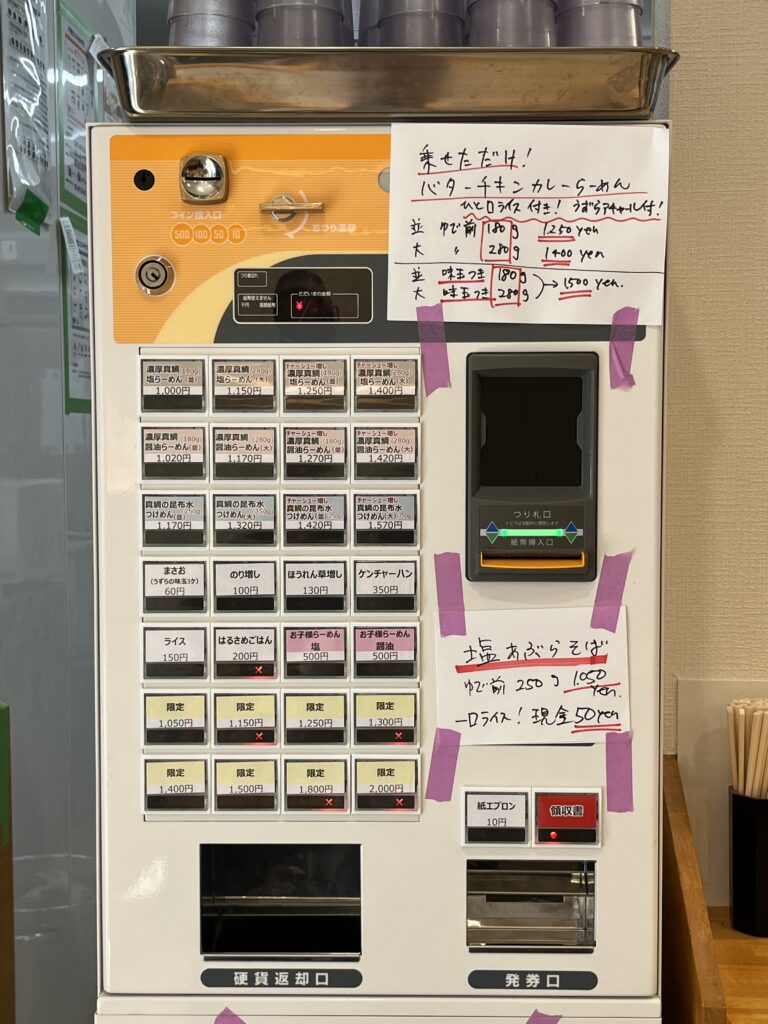 乗せただけ！
バターチキンカレーらーめん
ひと口ライス付き！うずらアチャール付！
並 ゆで前 180g 1250yen
大 〃 280g 1400yen
並 味玉つき 180g
大 味玉つき 280g → 1500yen.
コイン投入口
500 100 50 10
おつり返却
つり銭切れ
紙幣使えません
千円 高額紙幣
ただいまの金額
¥
濃厚真鯛(180g)
塩らーめん(並)
1,000円
濃厚真鯛(280g)
塩らーめん(大)
1,150円
チャーシュー増し
濃厚真鯛(180g)
塩らーめん(並)
1,250円
チャーシュー増し
濃厚真鯛(280g)
塩らーめん(大)
1,400円
濃厚真鯛(180g)
醤油らーめん(並)
1,020円
濃厚真鯛(280g)
醤油らーめん(大)
1,170円
チャーシュー増し
濃厚真鯛(180g)
醤油らーめん(並)
1,270円
チャーシュー増し
濃厚真鯛(280g)
醤油らーめん(大)
1,420円
真鯛の昆布水
つけめん(並)250g
1,170円
真鯛の昆布水
つけめん(大)350g
1,320円
チャーシュー増し
真鯛の昆布水
つけめん(並)
1,420円
チャーシュー増し
真鯛の昆布水
つけめん(大)
1,570円
まさお
(うずらの味玉3ケ)
60円
のり増し
100円
ほうれん草増し
130円
ケンチャーハン
350円
ライス
150円
はるさめごはん
200円
お子様らーめん
塩
500円
お子様らーめん
醤油
500円
限定
1,050円
限定
1,150円
限定
1,250円
限定
1,300円
限定
1,400円
限定
1,500円
限定
1,800円
限定
2,000円
つり札口
トビラは自動的に開閉します
紙幣挿入口
塩あぶらそば
ゆで前 250g 1,050yen.
一口ライス！現金50yen
紙エプロン
10円
領収書
硬貨返却口
発券口